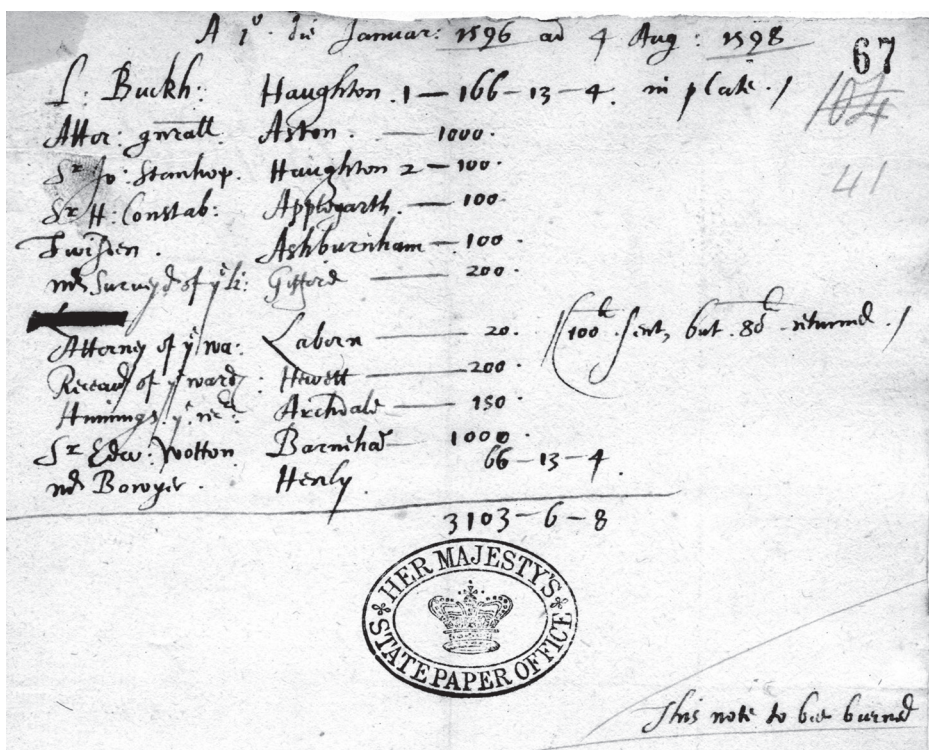 A j⁰ die Januar: 1596 ad 4 Aug: 1598
67
104
41
L: Buckh: Haughton. 1 — 166-13-4. in plate. /
Attor: gnrall Aston. — 1000.
Sr Jo: Stanhop. Haughton 2 — 100.
Sr H: Constab: Applegarth. — 100.
Twisden. Ashburnham — 100.
of ye li: Gifford — 200.
Attorney of ye wa: Laborn — 20. / (100li sent, but 80li returned. /
of ye ward: Hewett — 200.
Archdale — 150.
Sr Edw: Wotton. Barnehā — 1000.
Bowyer. Henly. 66-13-4.
3103-6-8
HER MAJESTY'S
STATE PAPER OFFICE
This note to bee burned